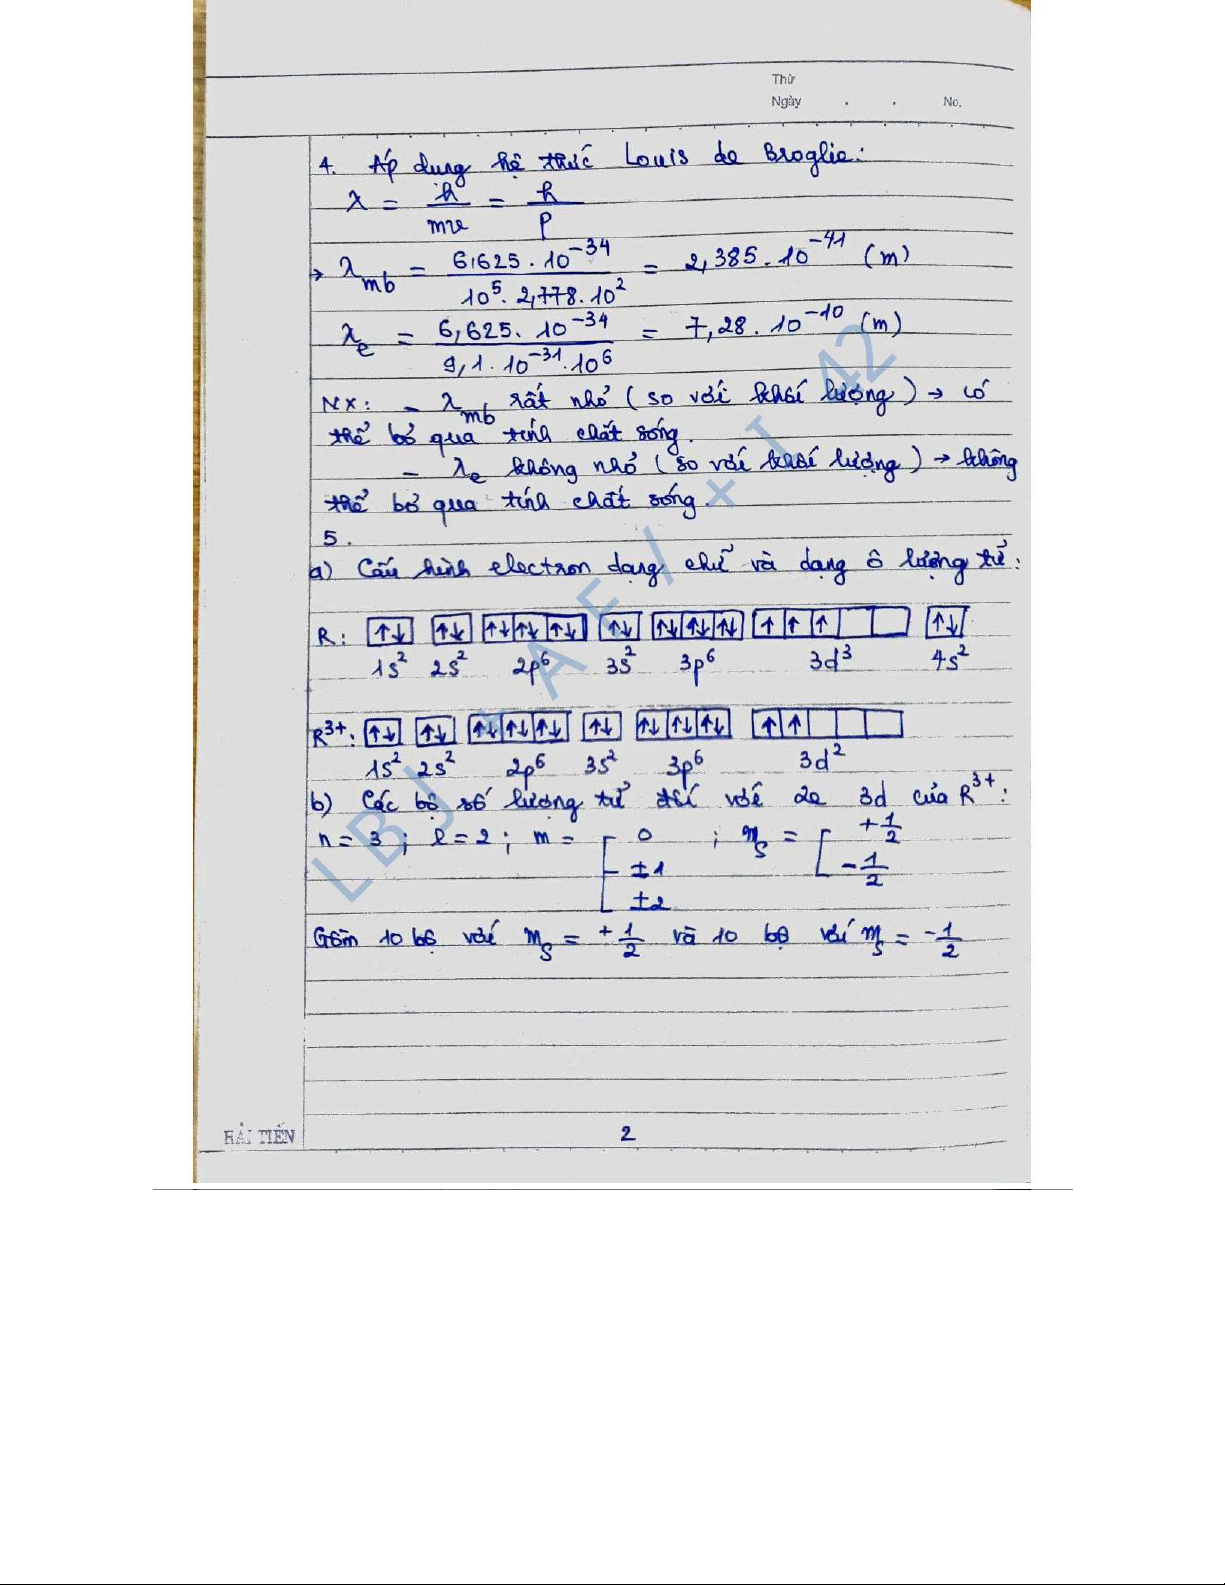 Thứ
Ngày . . No.
4. Áp dụng hệ thức Louis de Broglie:
λ = h/mv = h/p
→ λmb = 6,625.10⁻³⁴/10⁵.2,778.10² = 2,385.10⁻⁴¹ (m)
λe = 6,625.10⁻³⁴/9,1.10⁻³¹.10⁶ = 7,28.10⁻¹⁰ (m)
NX: - λmb rất nhỏ (so với khối lượng) → có
thể bỏ qua tính chất sóng.
- λe không nhỏ (so với khối lượng) → không
thể bỏ qua tính chất sóng.
5.
a) Cấu hình electron dạng chữ và dạng ô lượng tử:
R: ↑↓ ↑↓ ↑↓ ↑↓ ↑↓ ↑↓ ↑↓ ↑↓ ↑↓ ↑ ↑ ↑ ↑↓
1s² 2s² 2p⁶ 3s² 3p⁶ 3d³ 4s²
R³⁺: ↑↓ ↑↓ ↑↓ ↑↓ ↑↓ ↑↓ ↑↓ ↑↓ ↑↓ ↑ ↑
1s² 2s² 2p⁶ 3s² 3p⁶ 3d²
b) Các bộ số lượng tử đối với 2e 3d của R³⁺:
n = 3 ; l = 2 ; m = [ 0 ; ms = [ +1/2
±1 -1/2
±2
Gồm 10 bộ với ms = +1/2 và 10 bộ với ms = -1/2
HẢI TIẾN
2